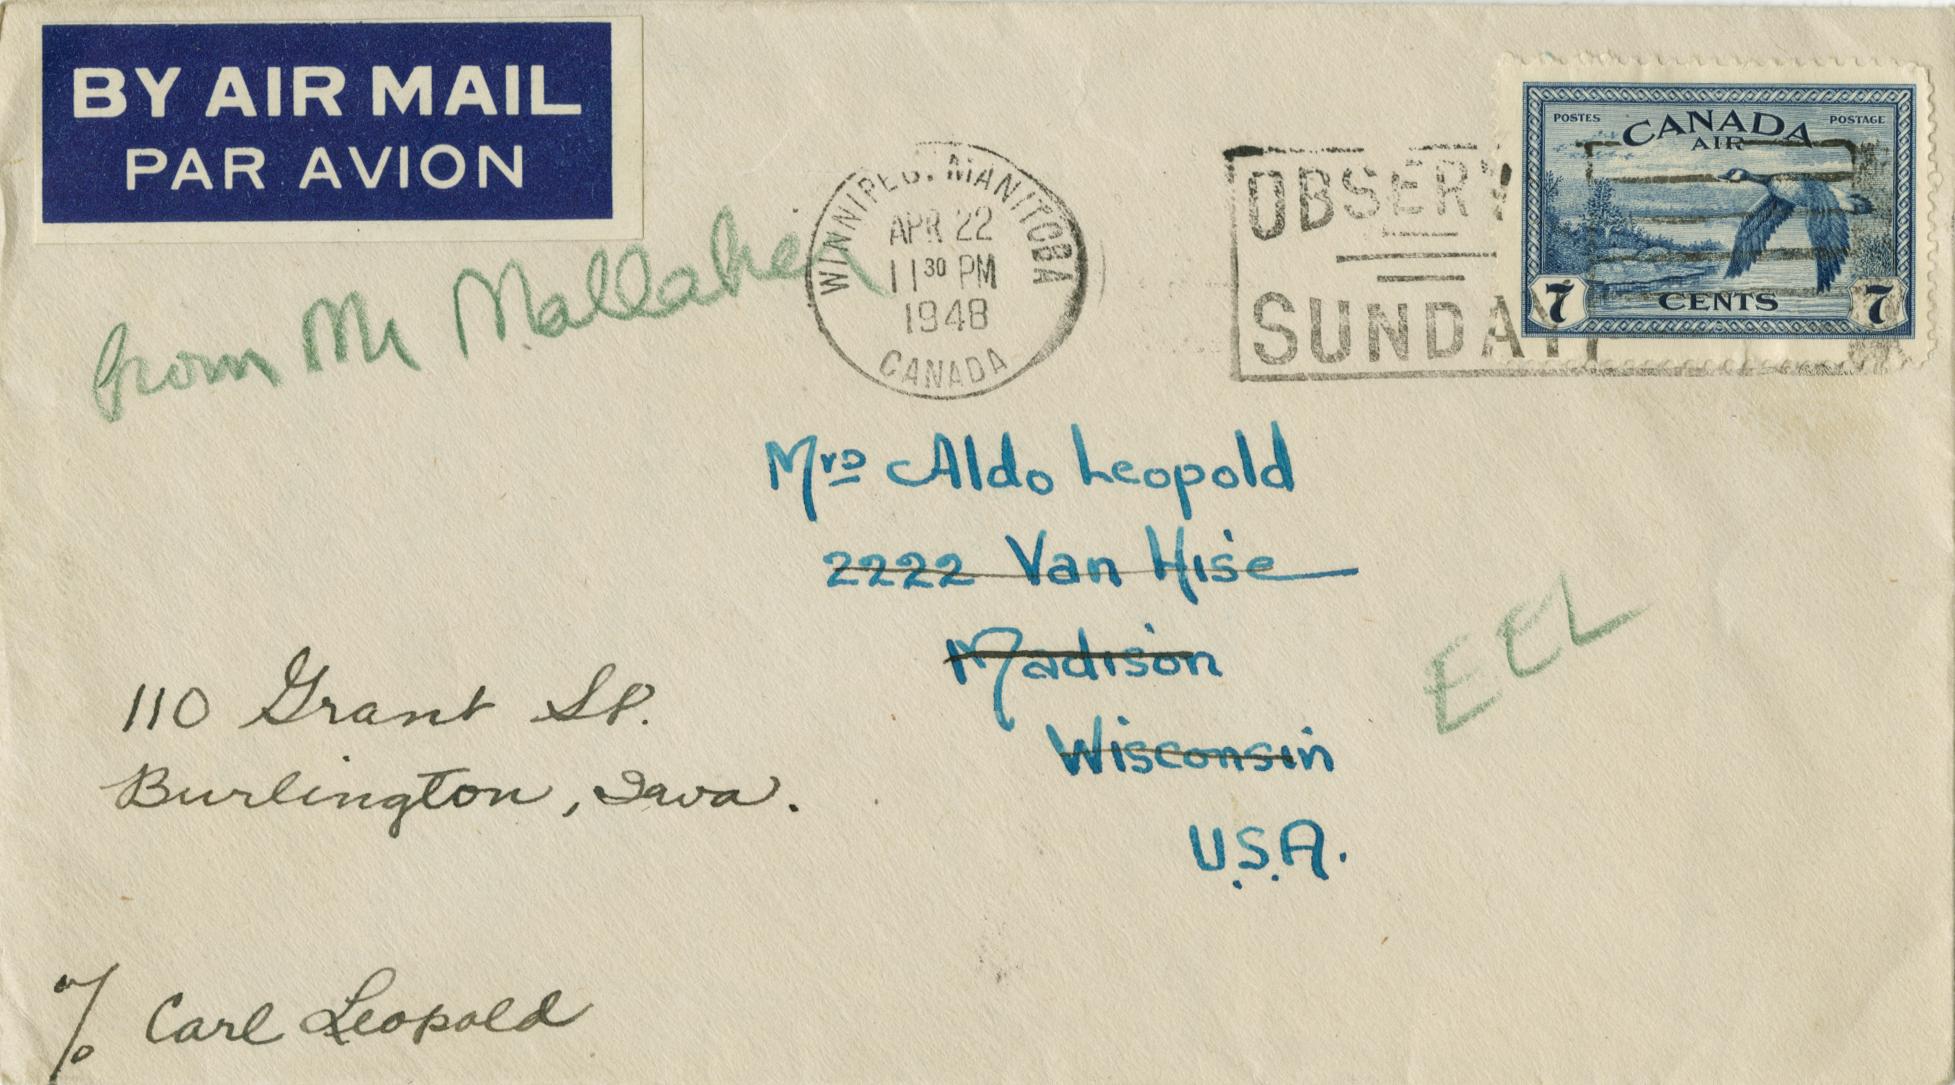 BY AIR MAIL
PAR AVION
WINNIPEG, MANITOBA
APR 22
11 30 PM
1948
CANADA
OBSERV
SUNDAY
POSTES CANADA POSTAGE
AIR
7 CENTS 7
from Mr
Mrs Aldo Leopold
2222 Van Hise
Madison
Wisconsin
U.S.A.
EEL
110 Grant St.
Burlington, Iowa.
% Carl Leopold